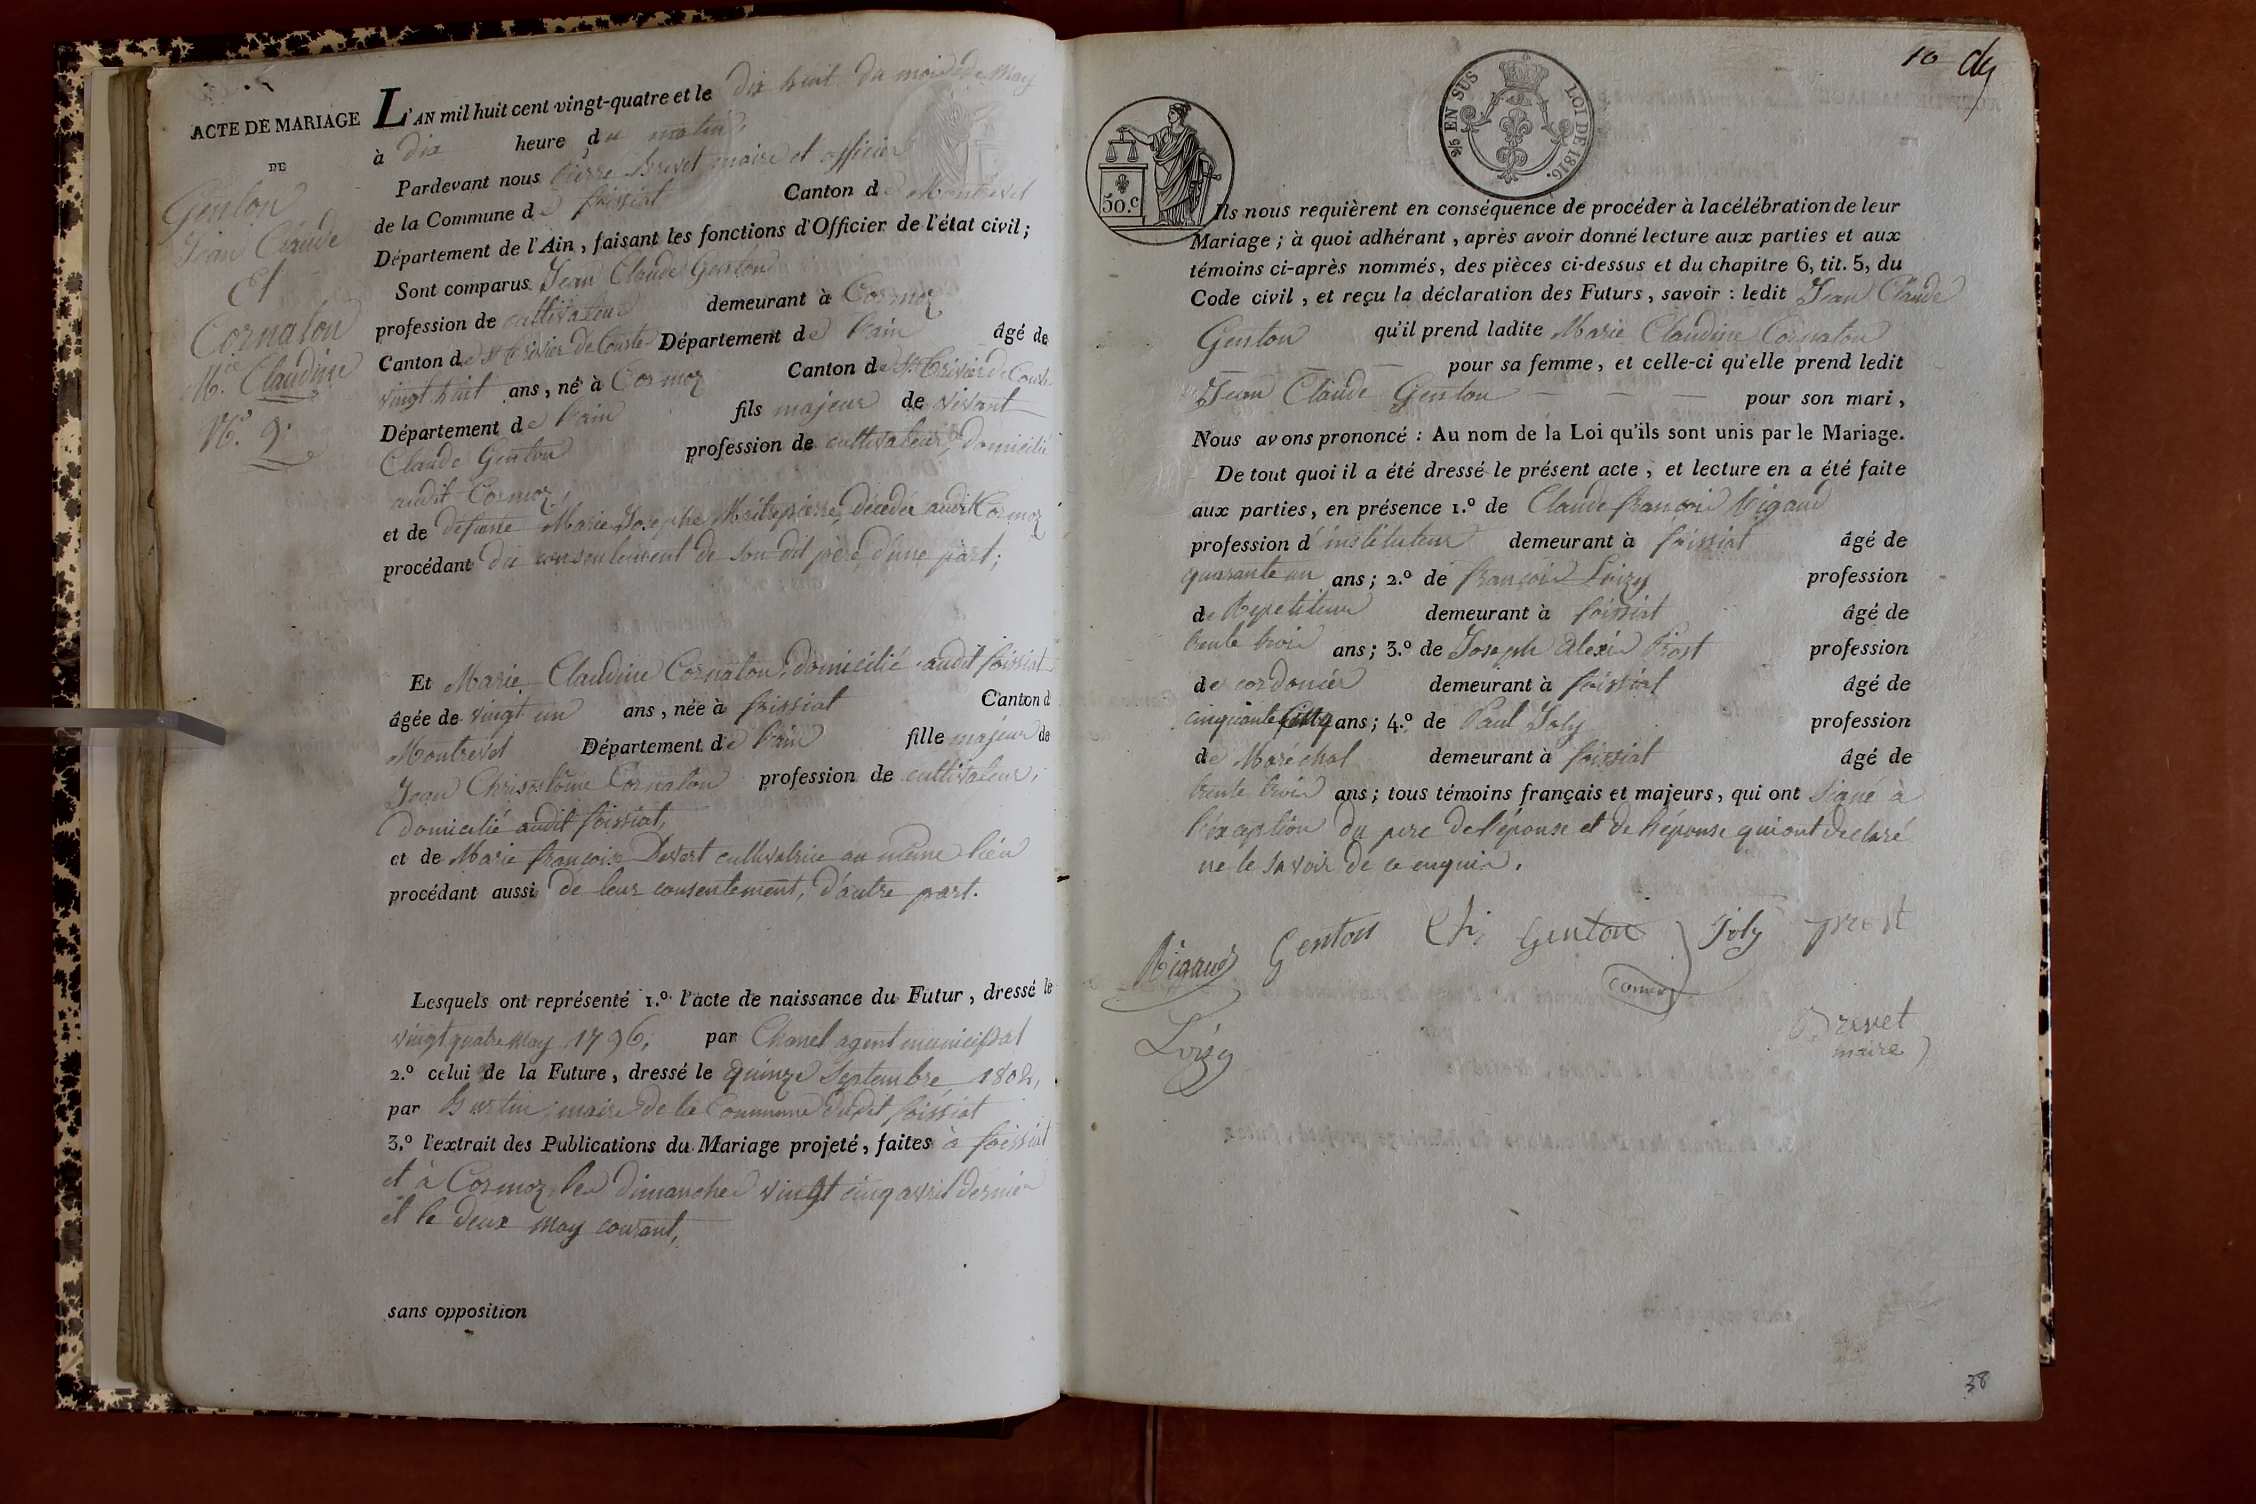 ACTE DE MARIAGE
DE
Genton
Jean Claude
Et
Cornaton
M.ie Claudine
N.o 9.
L'AN mil huit cent vingt-quatre et le dix huit du mois de May
à dix heure du matin,
Pardevant nous Pierre Brevet maire et officier
de la Commune de foissiat Canton de Montrevel
Département de l'Ain, faisant les fonctions d'Officier de l'état civil;
Sont comparus Jean Claude Genton
profession de cultivateur demeurant à Cormoz
Canton de St Trivier de Courte Département de l'ain âgé de
vingt huit ans, né à Cormoz Canton de St Trivier de Courte
Département de l'ain fils majeur de vivant
Claude Genton profession de cultivateur, domicilié
audit Cormoz
et de défunte Marie Josephe Maitrepierre, décédée audit Cormoz
procédant du consentement de son dit père, d'une part;
Et Marie Claudine Cornaton, domicilié audit foissiat
âgée de vingt un ans, née à foissiat Canton d
Montrevel Département de l'ain fille majeur de
Jean Chrisostôme Cornaton profession de cultivateur,
domicilié audit foissiat,
et de Marie françoise Devert cultivatrice au même lieu
procédant aussi de leur consentement, d'autre part.
Lesquels ont représenté 1.º l'acte de naissance du Futur, dressé le
vingt quatre may 1796, par Chanel agent municipal
2.º celui de la Future, dressé le quinze Septembre 1802,
par Burtin maire de la Commune dudit foissiat
3.º l'extrait des Publications du Mariage projeté, faites à foissiat
et à Cormoz, les dimanches vingt cinq avril dernier
et le deux may courant,
sans opposition
10
5/6 EN SUS LOI DE 1816.
50.c
Ils nous requièrent en conséquence de procéder à la célébration de leur
Mariage; à quoi adhérant, après avoir donné lecture aux parties et aux
témoins ci-après nommés, des pièces ci-dessus et du chapitre 6, tit. 5, du
Code civil, et reçu la déclaration des Futurs, savoir: ledit Jean Claude
Genton qu'il prend ladite Marie Claudine Cornaton
pour sa femme, et celle-ci qu'elle prend ledit
Jean Claude Genton pour son mari,
Nous avons prononcé: Au nom de la Loi qu'ils sont unis par le Mariage.
De tout quoi il a été dressé le présent acte, et lecture en a été faite
aux parties, en présence 1.º de Claude françois Rigaud
profession d'instituteur demeurant à foissiat âgé de
quarante un ans; 2.º de françois Loizy profession
de Repetiteur demeurant à foissiat âgé de
trente trois ans; 3.º de Joseph Alexis Prost profession
de cordonier demeurant à foissiat âgé de
cinquante cinq ans; 4.º de Paul Joly profession
de Maréchal demeurant à foissiat âgé de
trente trois ans; tous témoins français et majeurs, qui ont Signé à
l'éxception du pere de l'épouse et de l'épouse qui ont declaré
ne le savoir de ce enquis.
Rigaud Genton Genton Joly prost
Loizy
Brevet
maire
38